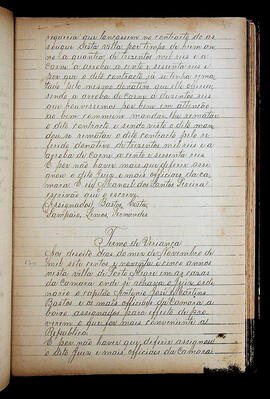 queria que lançassem no contracto do as
souque desta villa por tempo de hum an
no a quantia de trezentos mil reis e a
arroba de carne a cento e sessenta reis e
por que o dito contracto já se tinha rema
tado pelo mesmo donativo que elle offerece
sendo a arroba de carne a duzentos reis
que houvessemos por bem em attenção
ao bem commum mandar lhe rematar
o dito contracto e sendo visto o dito man
dou se rematar o dito contracto pelo re
ferido donativo de trezentos mil reis e a
arroba de carne a cento e sessenta reis
E por não haver mais que deferir assi
gnou o dito Juiz e mais officiaes da ca
mara. E eu Manoel dos Santos Pereira
escrivão que o escrevy
(Assignados) Bastos, Costa,
Sampaio, Lemos, Fernandes
Termo de Veriança
Aos dezoito dias do mez de Novembro de
mil sete centos e noventa e cinco annos
nesta villa de Porto Alegre em as casas
da camara onde se achava o Juiz orde
nario o capitão Antonio José Martins
Bastos e os mais officiaes da camara a
baixo assignados para effeito de pro
verem o que for mais conveniente ao
Republica.
E por não haver que deferir assignou
o dito Juiz e mais officiaes da Camara